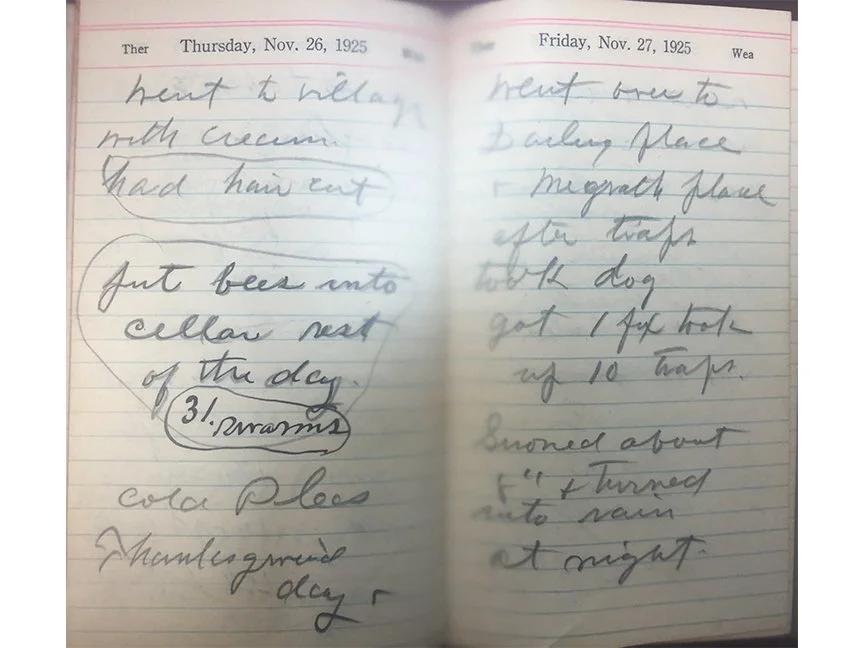 Ther Thursday, Nov. 26, 1925
went to village
with cream.
had hair cut
put bees into
cellar rest
of the day.
31. swarms
cold
Thanksgiving
day
Friday, Nov. 27, 1925 Wea
went over to
place
+ Megrath place
after traps
took dog
got 1 fox took
up 10 traps.
Snowed about
8" + turned
into rain
at night.